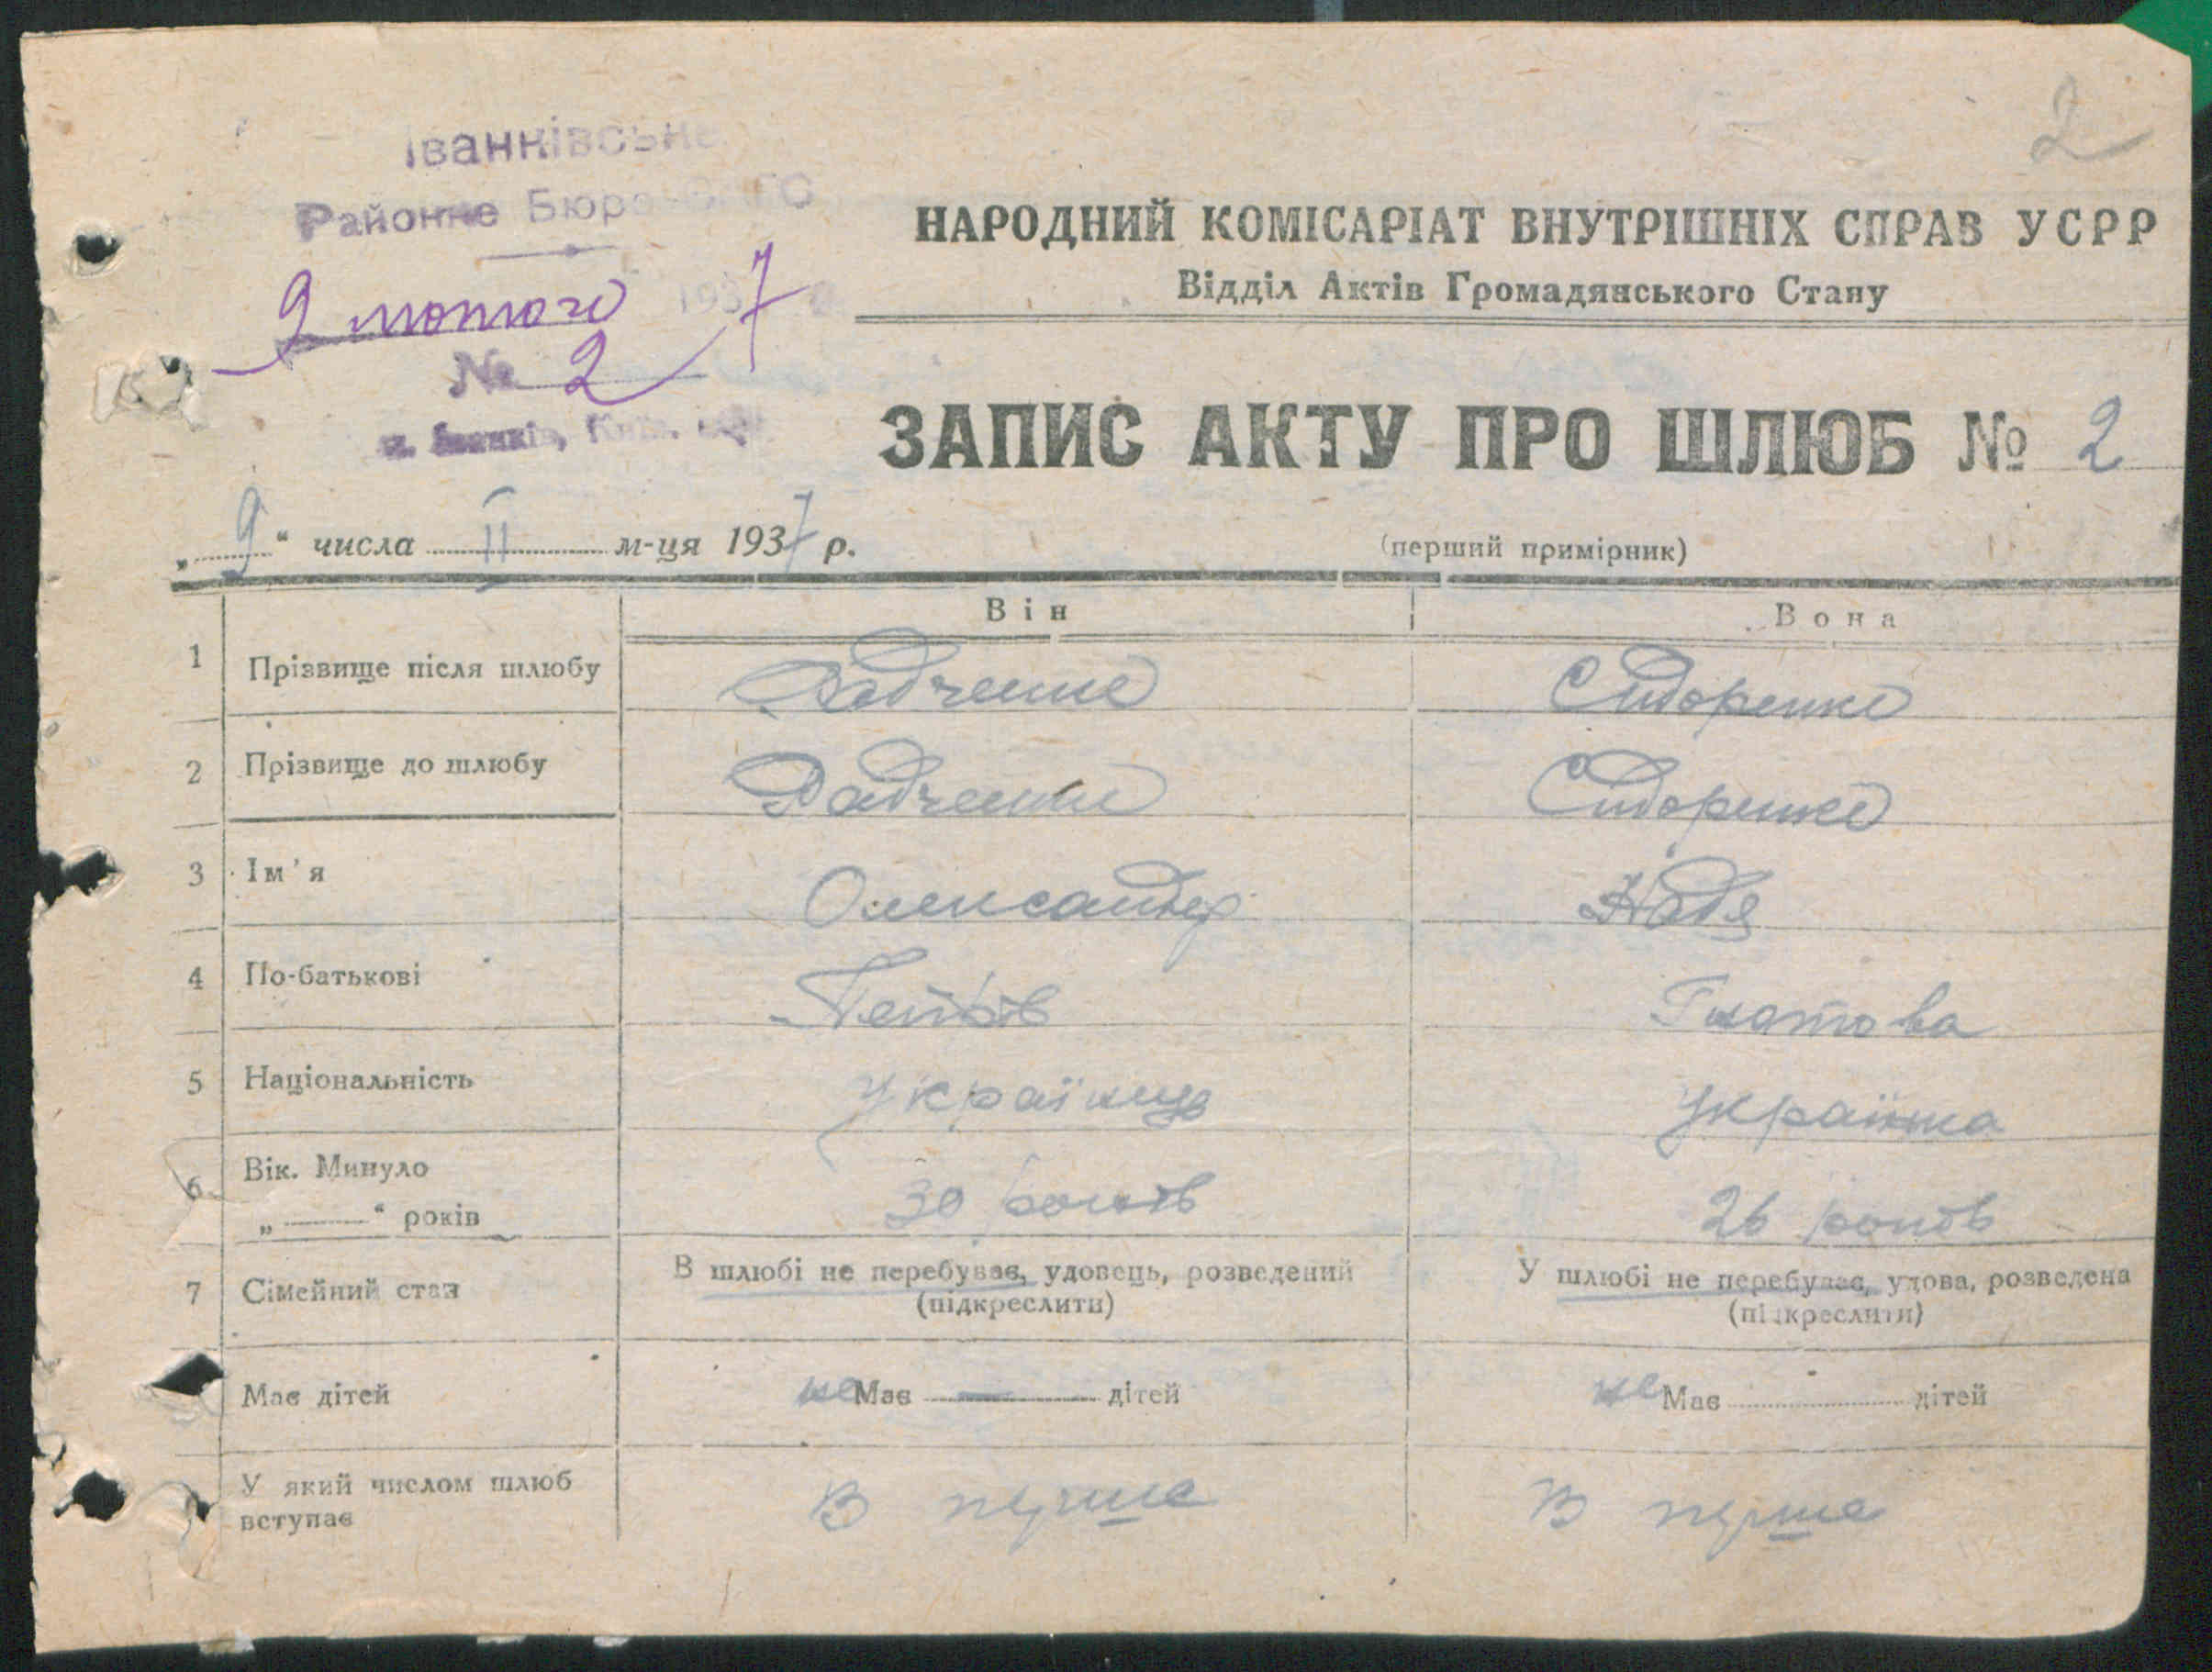 2
Іванківське
Районне Бюро ЗАГС
9 лютого 1937 р.
№ 2
м. Іванків, Київ. обл.
НАРОДНИЙ КОМІСАРІАТ ВНУТРІШНІХ СПРАВ УСРР
Відділ Актів Громадянського Стану
ЗАПИС АКТУ ПРО ШЛЮБ № 2
„ 9 “ числа II м-ця 1937 р. (перший примірник)
Він Вона
1 Прізвище після шлюбу Радченко Сидоренко
2 Прізвище до шлюбу Радченко Сидоренко
3 Ім'я Олександер Надя
4 По-батькові Петров Гнатова
5 Національність Українець Українка
6 Вік. Минуло
„ —— “ років 30 років 26 років
7 Сімейний стан В шлюбі не перебуває, удовець, розведений У шлюбі не перебуває, удова, розведена
(підкреслити) (підкреслити)
Має дітей не Має — дітей не Має дітей
У який числом шлюб
вступає В перше В перше